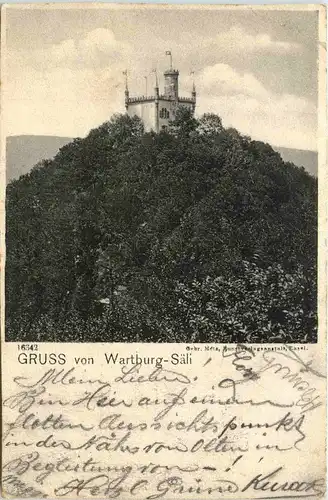 16342
Gebr. Metz, Kunstverlagsanstalt, Basel.
GRUSS von Wartburg-Säli
Mein Lieber!
Bin Hier auf einem
flotten Aussichtspunkt
in der Nähe von Olten in
Begleitung von - !
Herzl Grüne